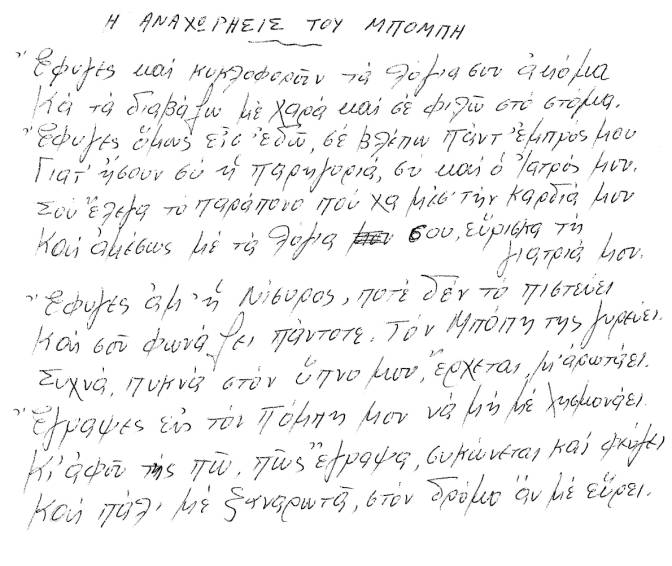 Η ΑΝΑΧΩΡΗΣΙΣ ΤΟΥ ΜΠΟΜΠΗ
Ἔφυγες καὶ κυκλοφοροῦν τὰ λόγια σου ἀκόμα
Κὰ τὰ διαβάζω μὲ χαρὰ καὶ σὲ φιλῶ στὸ στόμα.
Ἔφυγες ὅμως εἶσ' ἐδῶ, σὲ βλέπω πάντ' ἐμπρός μου
Γιατ' ἤσουν σὺ ἡ παρηγοριά, σὺ καὶ ὁ Ἰατρός μου.
Σοῦ ἔλεγα τὸ παράπονο ποὺ χα μέσ' τὴν καρδιά μου
Καὶ ἀμέσως μὲ τὰ λόγια σου, εὕρισκα τὴ
γιατριά μου.
Ἔφυγες ἀμ' ἡ Νίσυρος, ποτὲ δὲν τὸ πιστεύει
Καὶ σοῦ φωνάζει πάντοτε. Τὸν Μπόμπη της γυρεύει.
Συχνά, πυκνὰ στὸν ὕπνο μου, ἔρχεται, μ' ἀρωτάει.
Ἔγραψες εἰς τὸν Πόμπη μου νὰ μὴ μὲ λησμονάει.
Κι' ἀφοῦ τῆς πῶ, πῶς ἔγραψα, συκώνεται καὶ φεύγει
Καὶ πάλι μὲ ξαναρωτᾶ, στὸν δρόμο ἂν μὲ εὕρει.